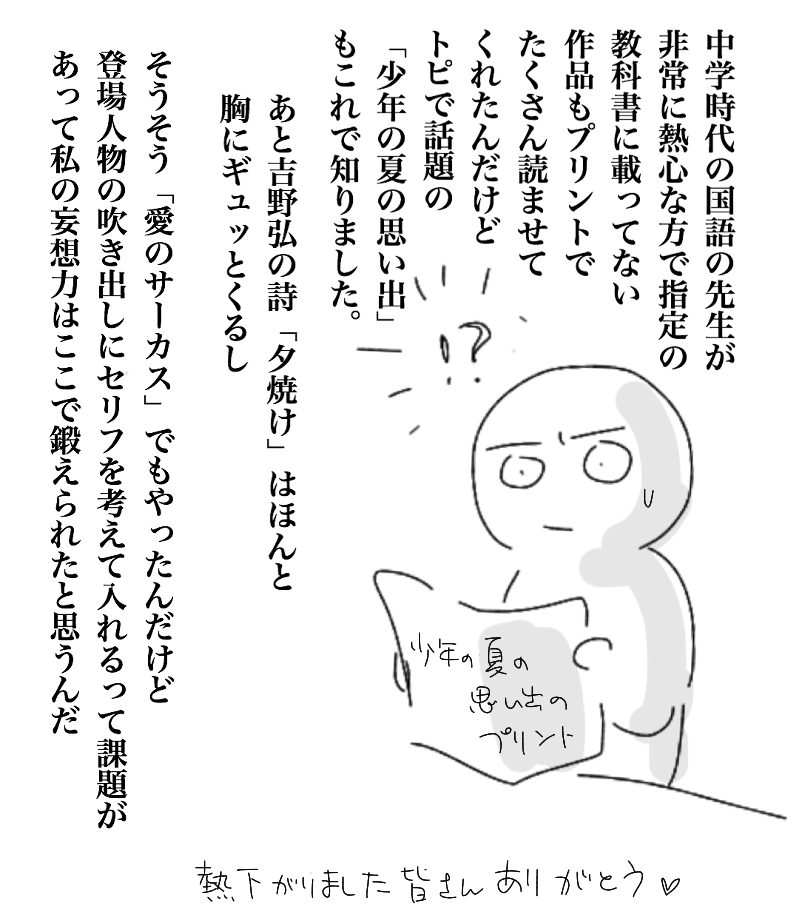 中学時代の国語の先生が
非常に熱心な方で指定の
教科書に載ってない
作品もプリントで
たくさん読ませて
くれたんだけど
トピで話題の
「少年の夏の思い出」
もこれで知りました。
あと吉野弘の詩「夕焼け」はほんと
胸にギュッとくるし
そうそう「愛のサーカス」でもやったんだけど
登場人物の吹き出しにセリフを考えて入れるって課題が
あって私の妄想力はここで鍛えられたと思うんだ
!?
少年の夏の
思い出の
プリント
熱下がりました皆さんありがとう♡